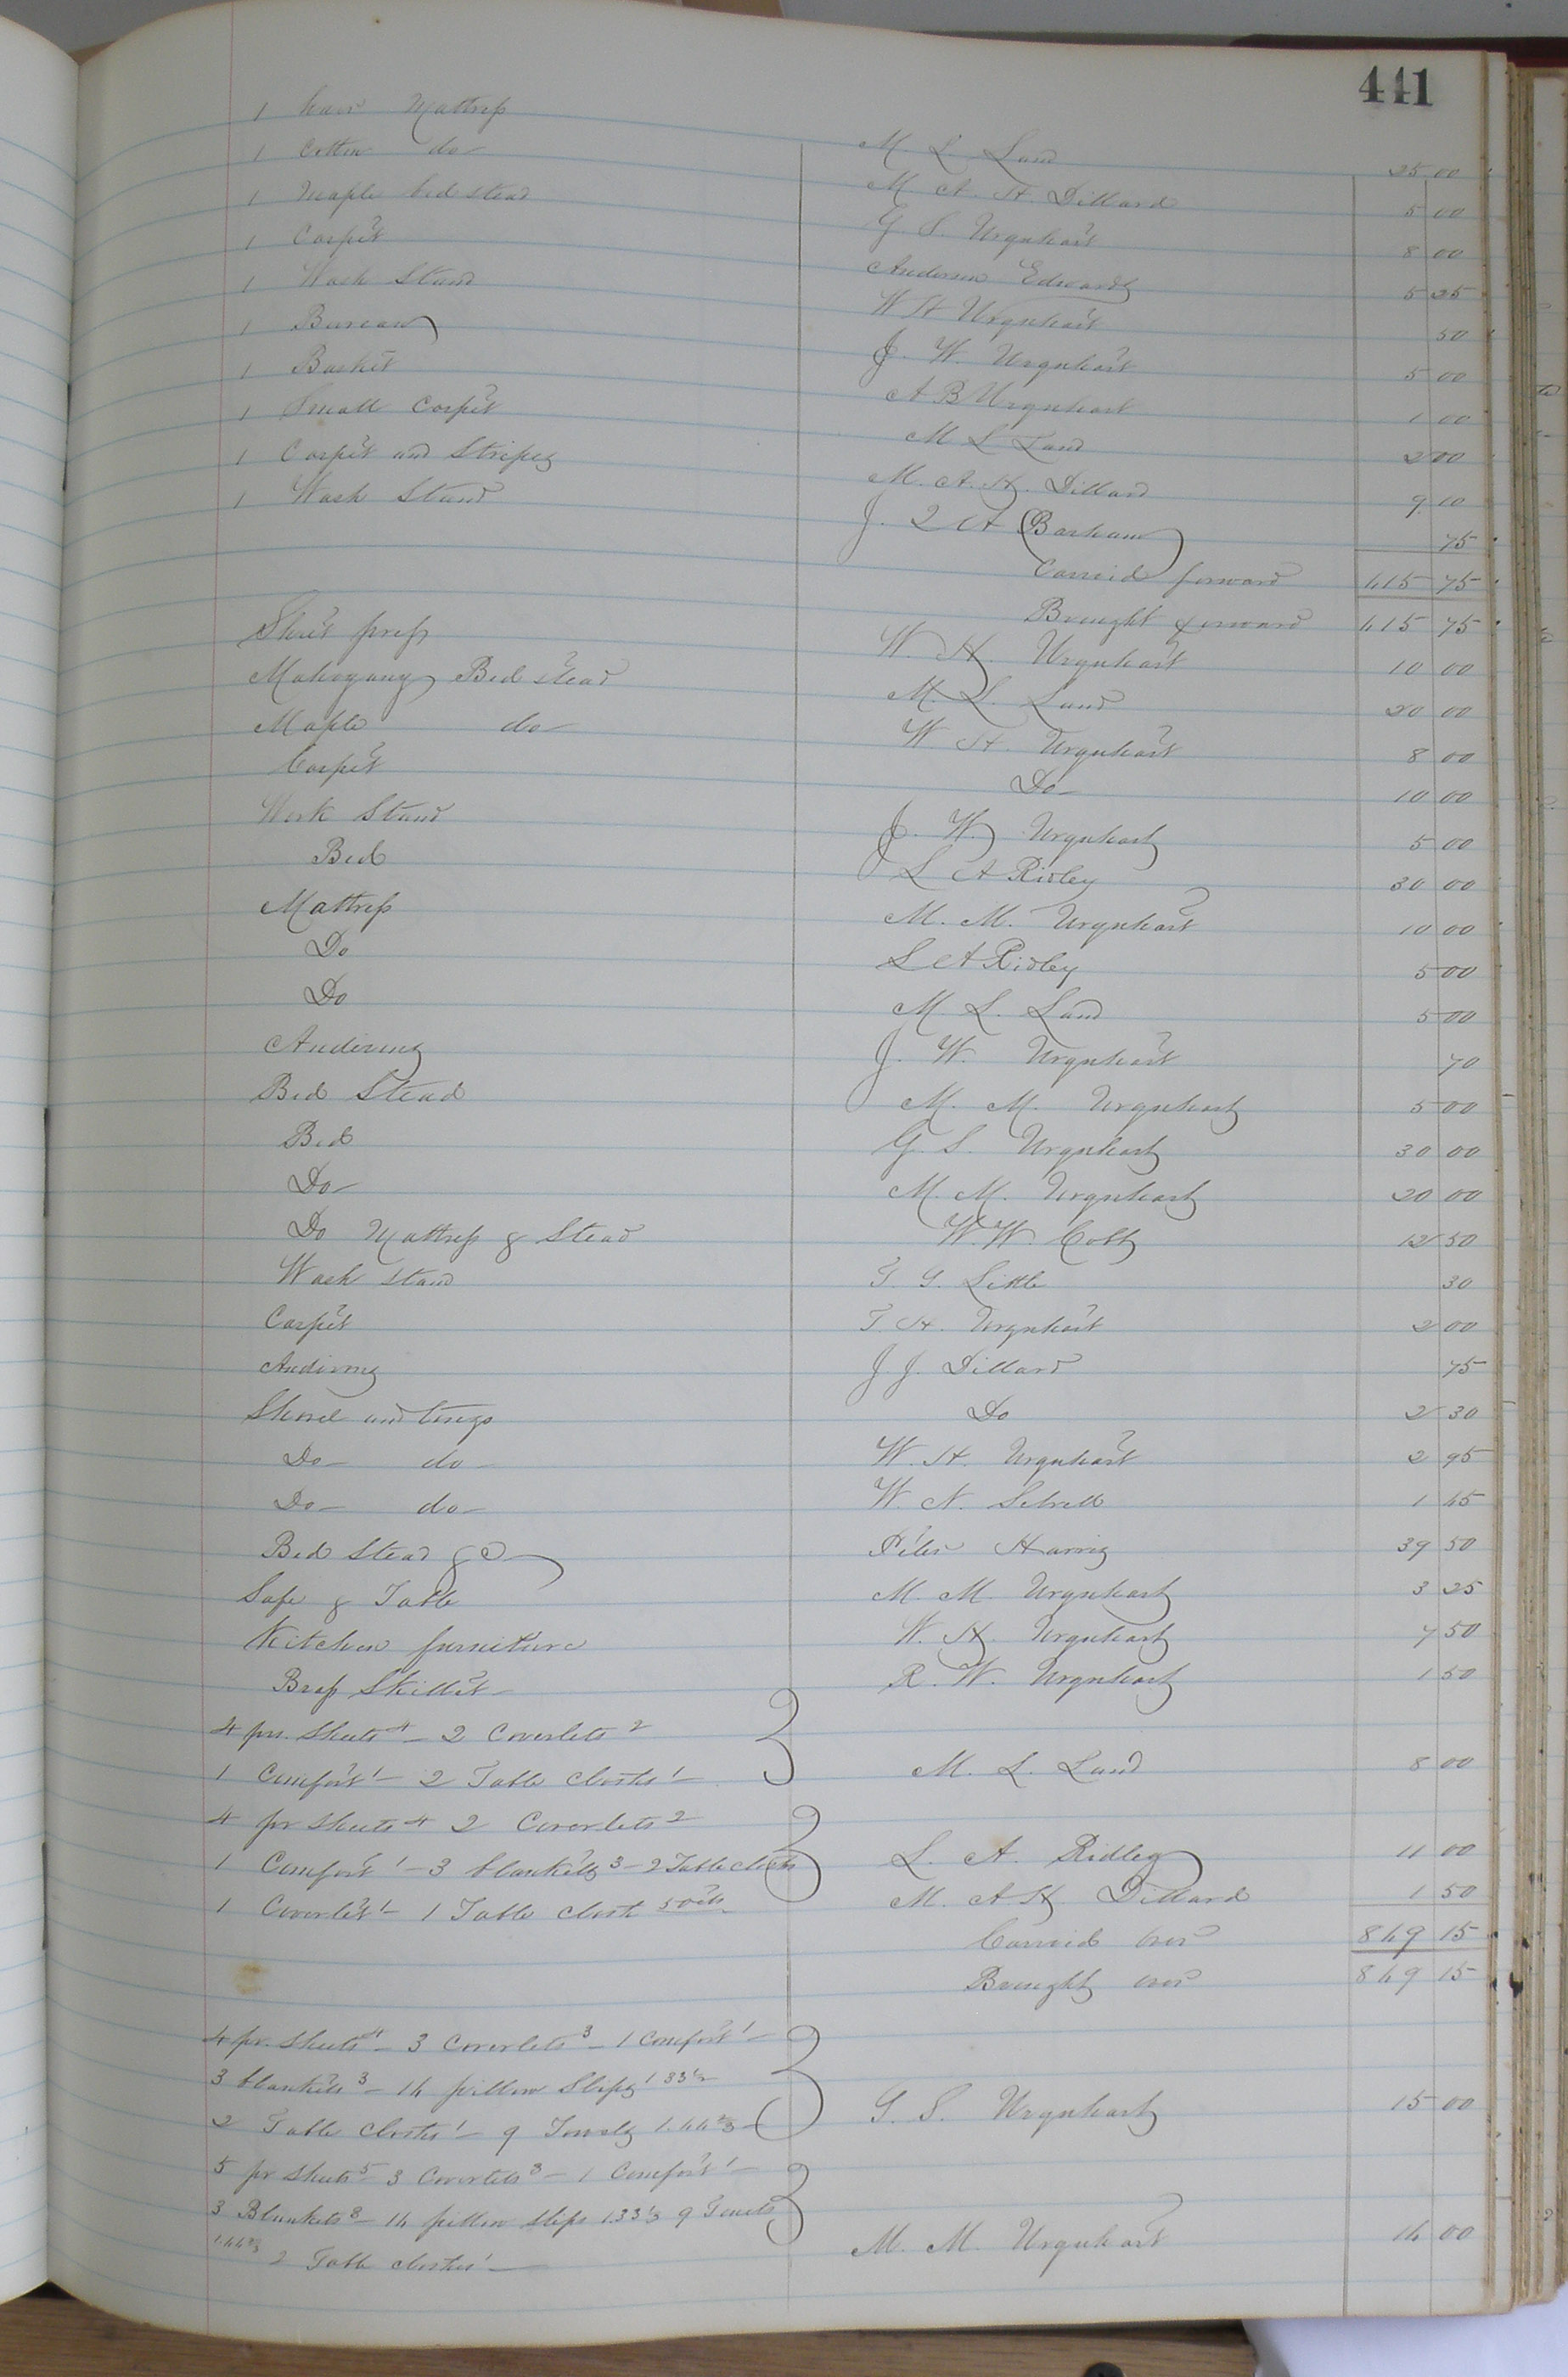 441
1 hair Mattress M. L. Land 25 00
1 Cotton do M. A. H. Dillard 5 00
1 Maple bed stead G. S. Urquhart 8 00
1 Carpet Anderson Edwards 5 25
1 Wash Stand W H Urquhart 50
1 Bureau J. W. Urquhart 5 00
1 Basket A B Urquhart 1 00
1 Small Carpet M L Land 2 00
1 Carpet and Stripes M. A. H. Dillard 9 10
1 Wash Stand J. Q A Barham 75
Carried forward 415 75
Brought forward 415 75
press W. H. Urquhart 10 00
Mahogany Bed stead M. L. Land 20 00
Maple do W H. Urquhart 8 00
Carpet Do 10 00
Work Stand J. W. Urquhart 5 00
Bed L A Ridley 30 00
Mattress M. M. Urquhart 10 00
Do L A Ridley 5 00
Do M. L. Land 5 00
Andirons J. W. Urquhart 70
Bed Stead M. M. Urquhart 5 00
Bed G. S. Urquhart 30 00
Do M. M. Urquhart 20 00
Do Mattress & Stead W. W. Cobb 12 50
Wash stand T. G. Little 30
Carpet T. H. Urquhart 2 00
Andirons J. J. Dillard 75
Shovel and tongs Do 2 30
Do do W. H. Urquhart 2 95
Do do W. N. 1 45
Bed Stead &c Harris 39 50
Safe & Table M. M. Urquhart 3 25
Kitchen furniture W. H. Urquhart 7 50
Brass Skillet R. W. Urquhart 1 50
4 prs. Sheets 4 – 2 Coverlets 2
1 Comfort 1 – 2 Table cloths 1 – M. L. Land 8 00
4 pr Sheets 4 2 Coverlets 2
1 Comfort 1 – 3 blankets 3 – 2 Table cloths L. A. Ridley 11 00
1 Coverlet 1 – 1 Table cloth 50 cts M. A H. Dillard 1 50
Carried over 849 15
Brought over 849 15
4 pr. Sheets 4 – 3 Coverlets 3 – 1 Comfort 1 –
3 blankets 3 – 14 pillow Slips 1 33 1/3
2 Table cloths 1 – 9 Towels 1.44 2/3 – G. S. Urquhart 15 00
5 pr Sheets 5 – 3 Coverlets 3 – 1 Comfort 1 –
3 Blankets 3 – 14 pillow slips 1.33 1/3 9 Towels
1.44 2/3 2 Table cloths 1 – M. M. Urquhart 16 00